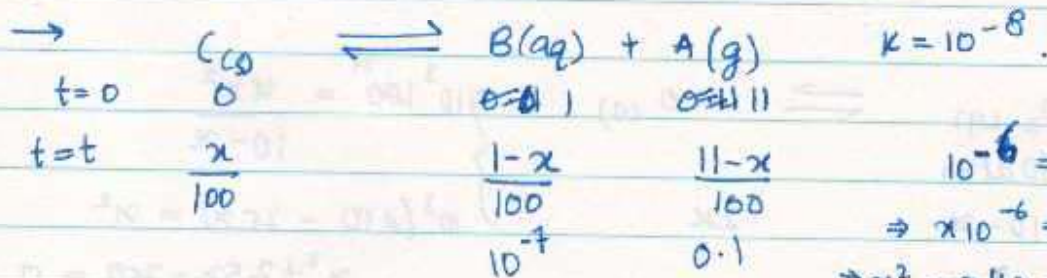 → C(s) ⇌ B(aq) + A(g) K = 10⁻⁸.
t=0 0 1 11
t=t x/100 1-x/100 11-x/100 10⁻⁶ =
10⁻⁷ 0.1 ⇒ x10⁻⁶ =